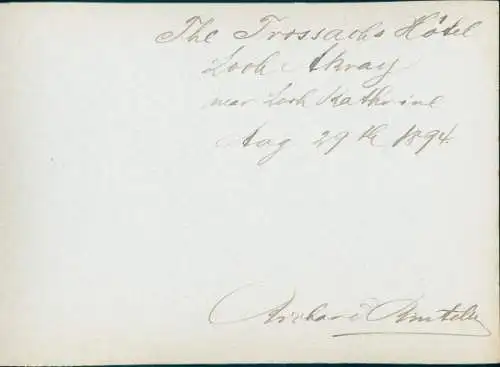 The Trossachs Hôtel
Loch Akray
near Loch Kathrine
Aug 29th 1894.
Richard